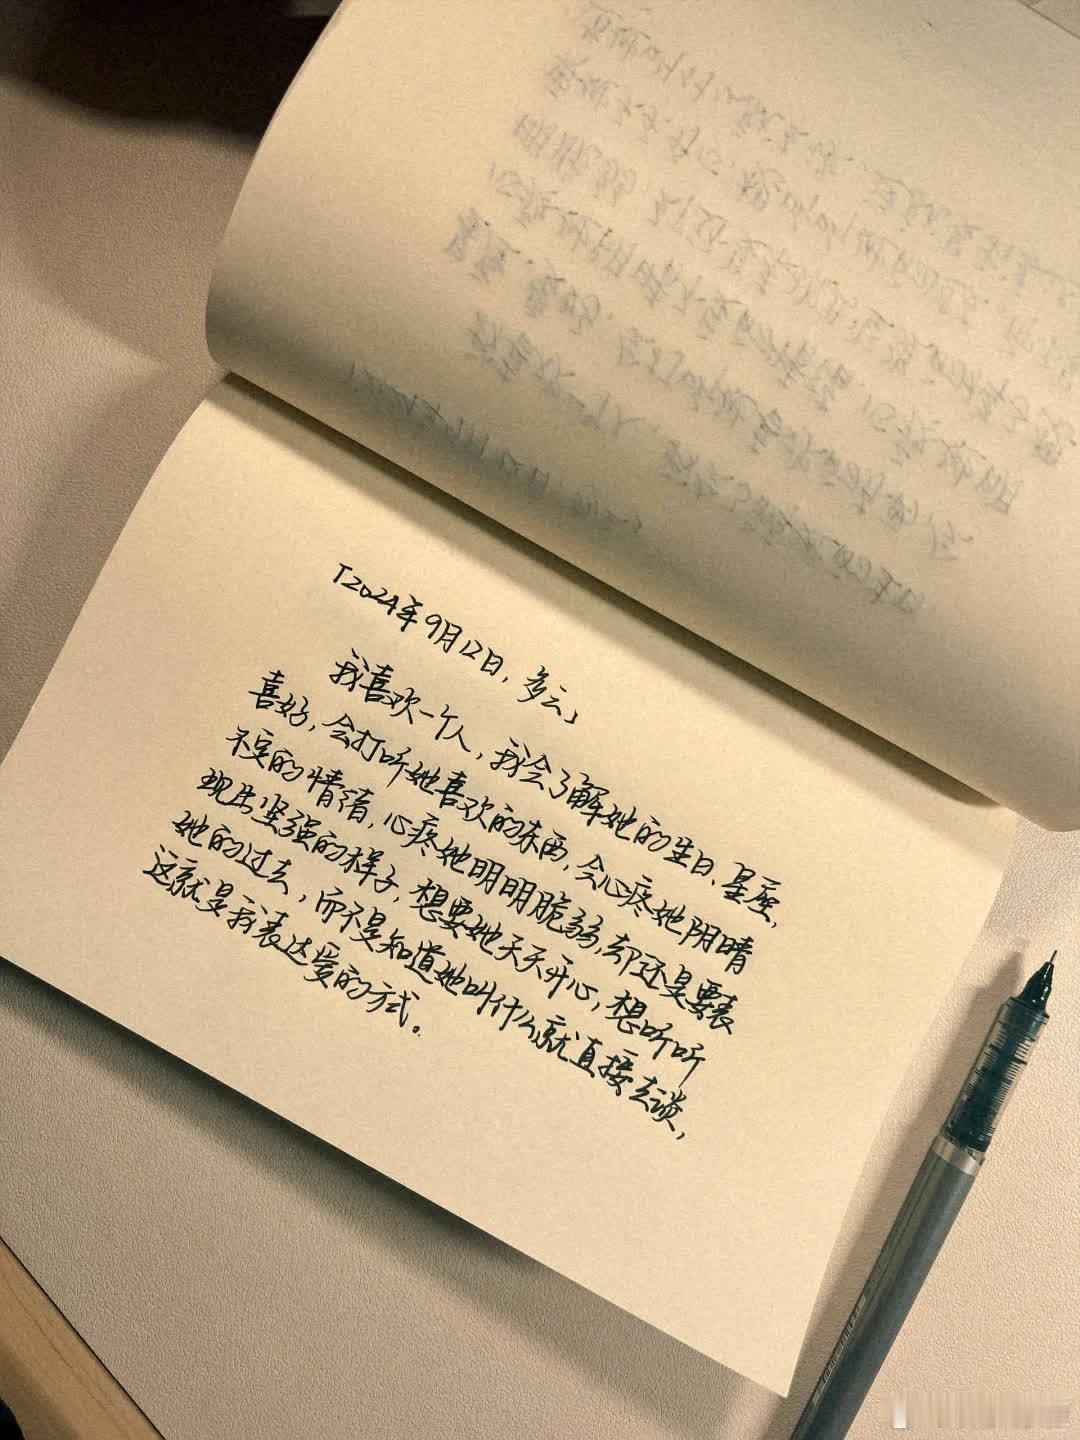 「2024年9月12日，多云」
我喜欢一个人，我会了解她的生日、星座，
喜好，会打听她喜欢的东西，会心疼她阴晴
不定的情绪，心疼她明明脆弱，却还是要表
现出坚强的样子，想要她天天开心，想听听
她的过去，而不是知道她叫什么就直接去谈，
这就是我表达爱的方式。